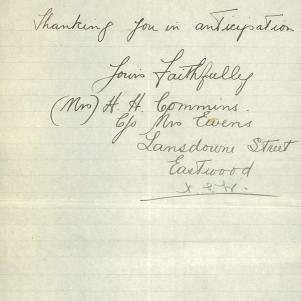 Thanking you in anticipation
Yours Faithfully
(Mrs) H. H. Commins.
C/o Mrs Ewens
Lansdowne Street
Eastwood
N.S.W.